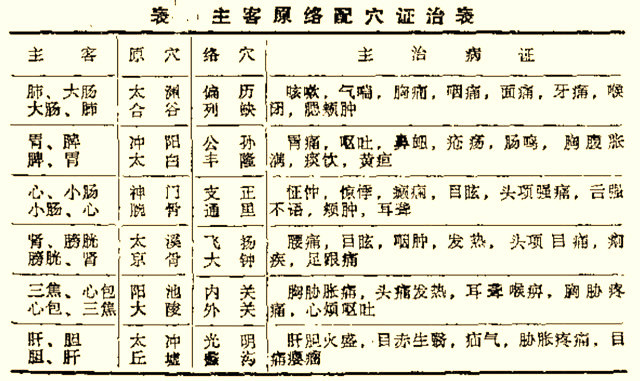 表 主客原络配穴证治表
主 客 原 穴 络 穴 主 治 病 证
肺、大肠 太 渊 偏 历 咳嗽，气喘，胸痛，咽痛，面痛，牙痛，喉
大肠、肺 合 谷 列 缺 闭，腮颊肿
胃、脾 冲 阳 公 孙 胃痛，呕吐，鼻衄，疮疡，肠鸣，胸腹胀
脾、胃 太 白 丰 隆 满，痰饮，黄疸
心、小肠 神 门 支 正 怔忡，惊悸，癫痫，目眩，头项强痛，舌强
小肠、心 腕 骨 通 里 不语，颊肿，耳聋
肾、膀胱 太 溪 飞 扬 腰痛，目眩，咽肿，发热，头项目痛，痫
膀胱、肾 京 骨 大 钟 疾，足跟痛
三焦、心包 阳 池 内 关 胸胁胀痛，头痛发热，耳聋喉痹，胸胁疼
心包、三焦 大 陵 外 关 痛，心烦呕吐
肝、胆 太 冲 光 明 肝胆火盛，目赤生翳，疝气，胁胀疼痛，目
胆、肝 丘 墟 蠡 沟 痛瘿瘤